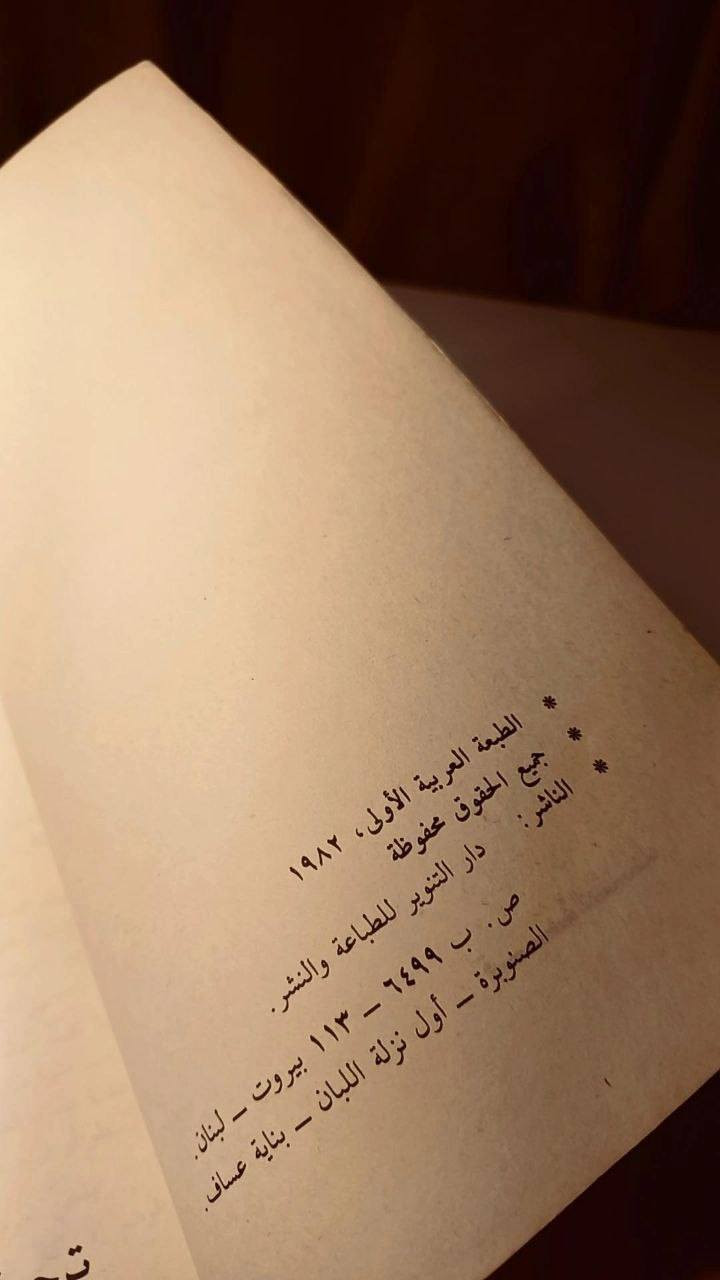 * الطبعة العربية الأولى، ١٩٨٢
* جميع الحقوق محفوظة
* الناشر: دار التنوير للطباعة والنشر.
ص. ب ٦٤٩٩ – ١١٣ بيروت – لبنان.
الصنوبرة – أول نزلة اللبان – بناية عساف.